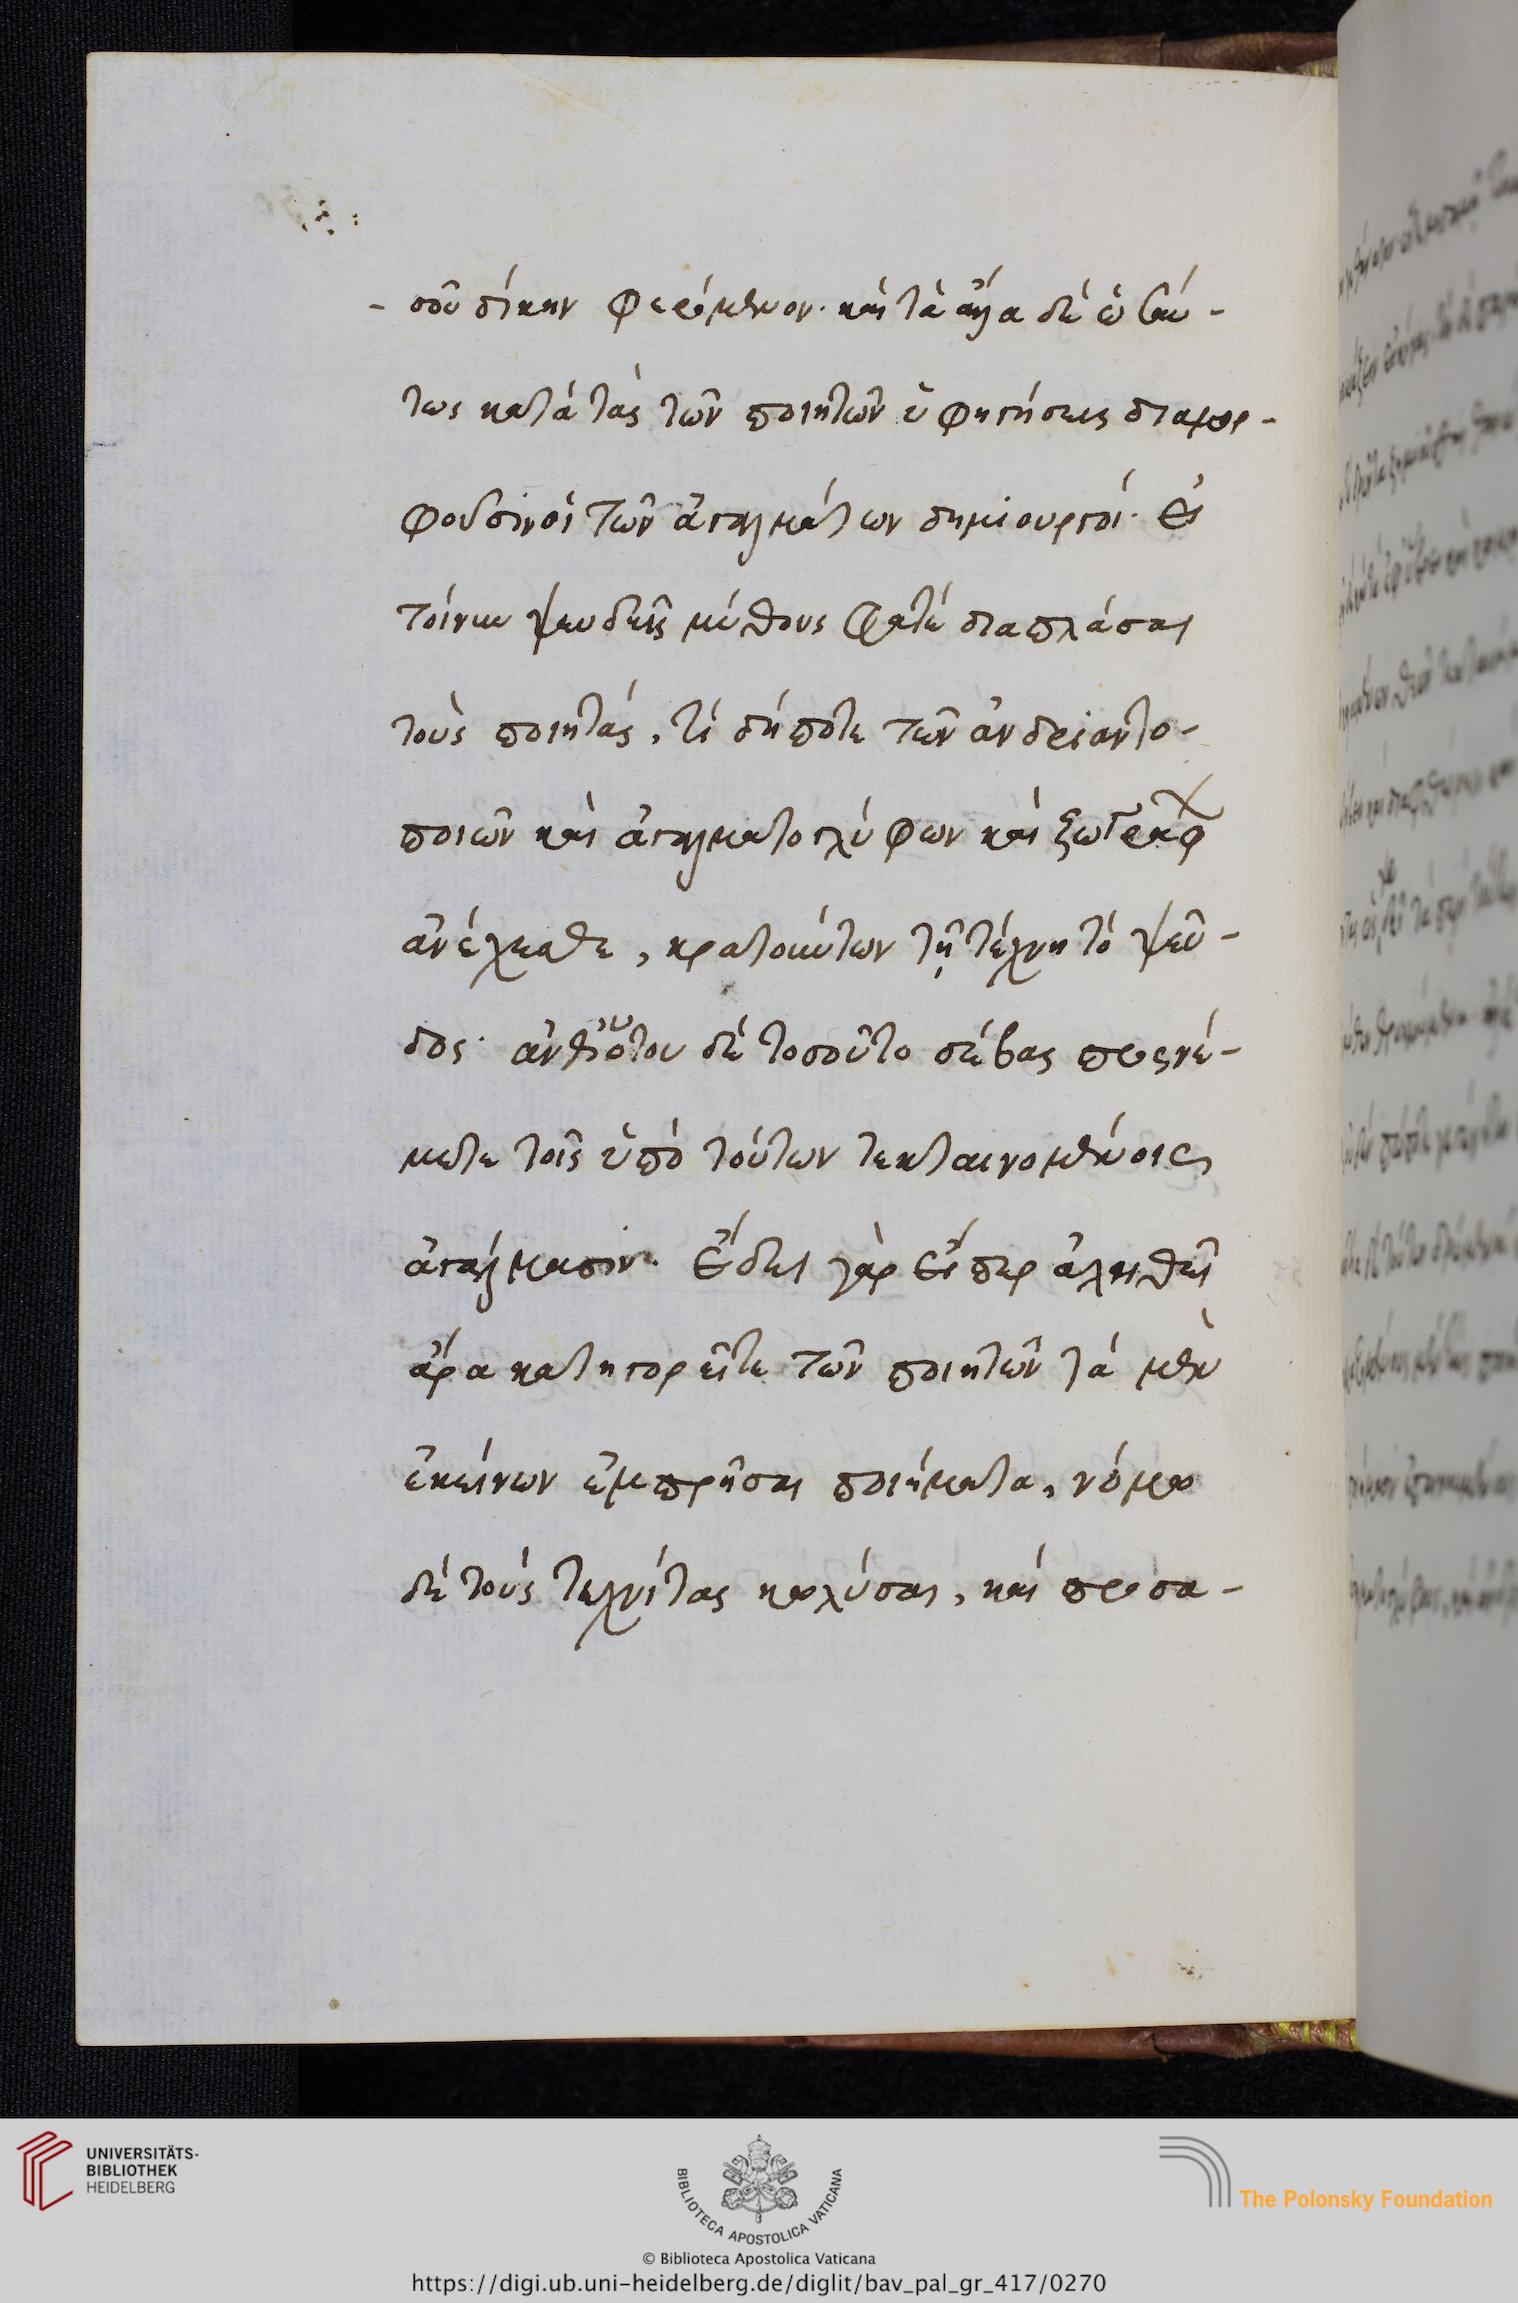 - σοῦ δίκην φερόμενον· καὶ τὰ ἄλλα δὲ ὡσαύ-
τως κατὰ τὰς τῶν ποιητῶν ὑφηγήσεις διαμορ-
φοῦσιν οἱ τῶν ἀγαλμάτων δημιουργοί· εἰ
τοίνυν ψευδεῖς μύθους φατὲ διαπλάσαι
τοὺς ποιητάς, τί δήποτε τῶν ἀνδριαντο-
ποιῶν καὶ ἀγαλματογλύφων καὶ ζωγράφ
ἀνέχεσθε, κρατούντων τῇ τέχνη τὸ ψεῦ-
δος· ἀνθότου δὲ τοσοῦτο σέβας προσνέ-
μετε τοῖς ὑπὸ τούτων τεκταινομένοις
ἀγάλμασιν· ἔδει γὰρ εἴπερ ἀληθῆ
ἄρα κατηγορεῖτε τῶν ποιητῶν τὰ μὲν
ἐκείνων ἐμπρῆσαι ποιήματα, νόμω
δὲ τοὺς τεχνίτας κωλύσαι, καὶ προσα-
UNIVERSITÄTS-
BIBLIOTHEK
HEIDELBERG
BIBLIOTECA APOSTOLICA VATICANA
The Polonsky Foundation
© Biblioteca Apostolica Vaticana
https://digi.ub.uni-heidelberg.de/diglit/bav_pal_gr_417/0270